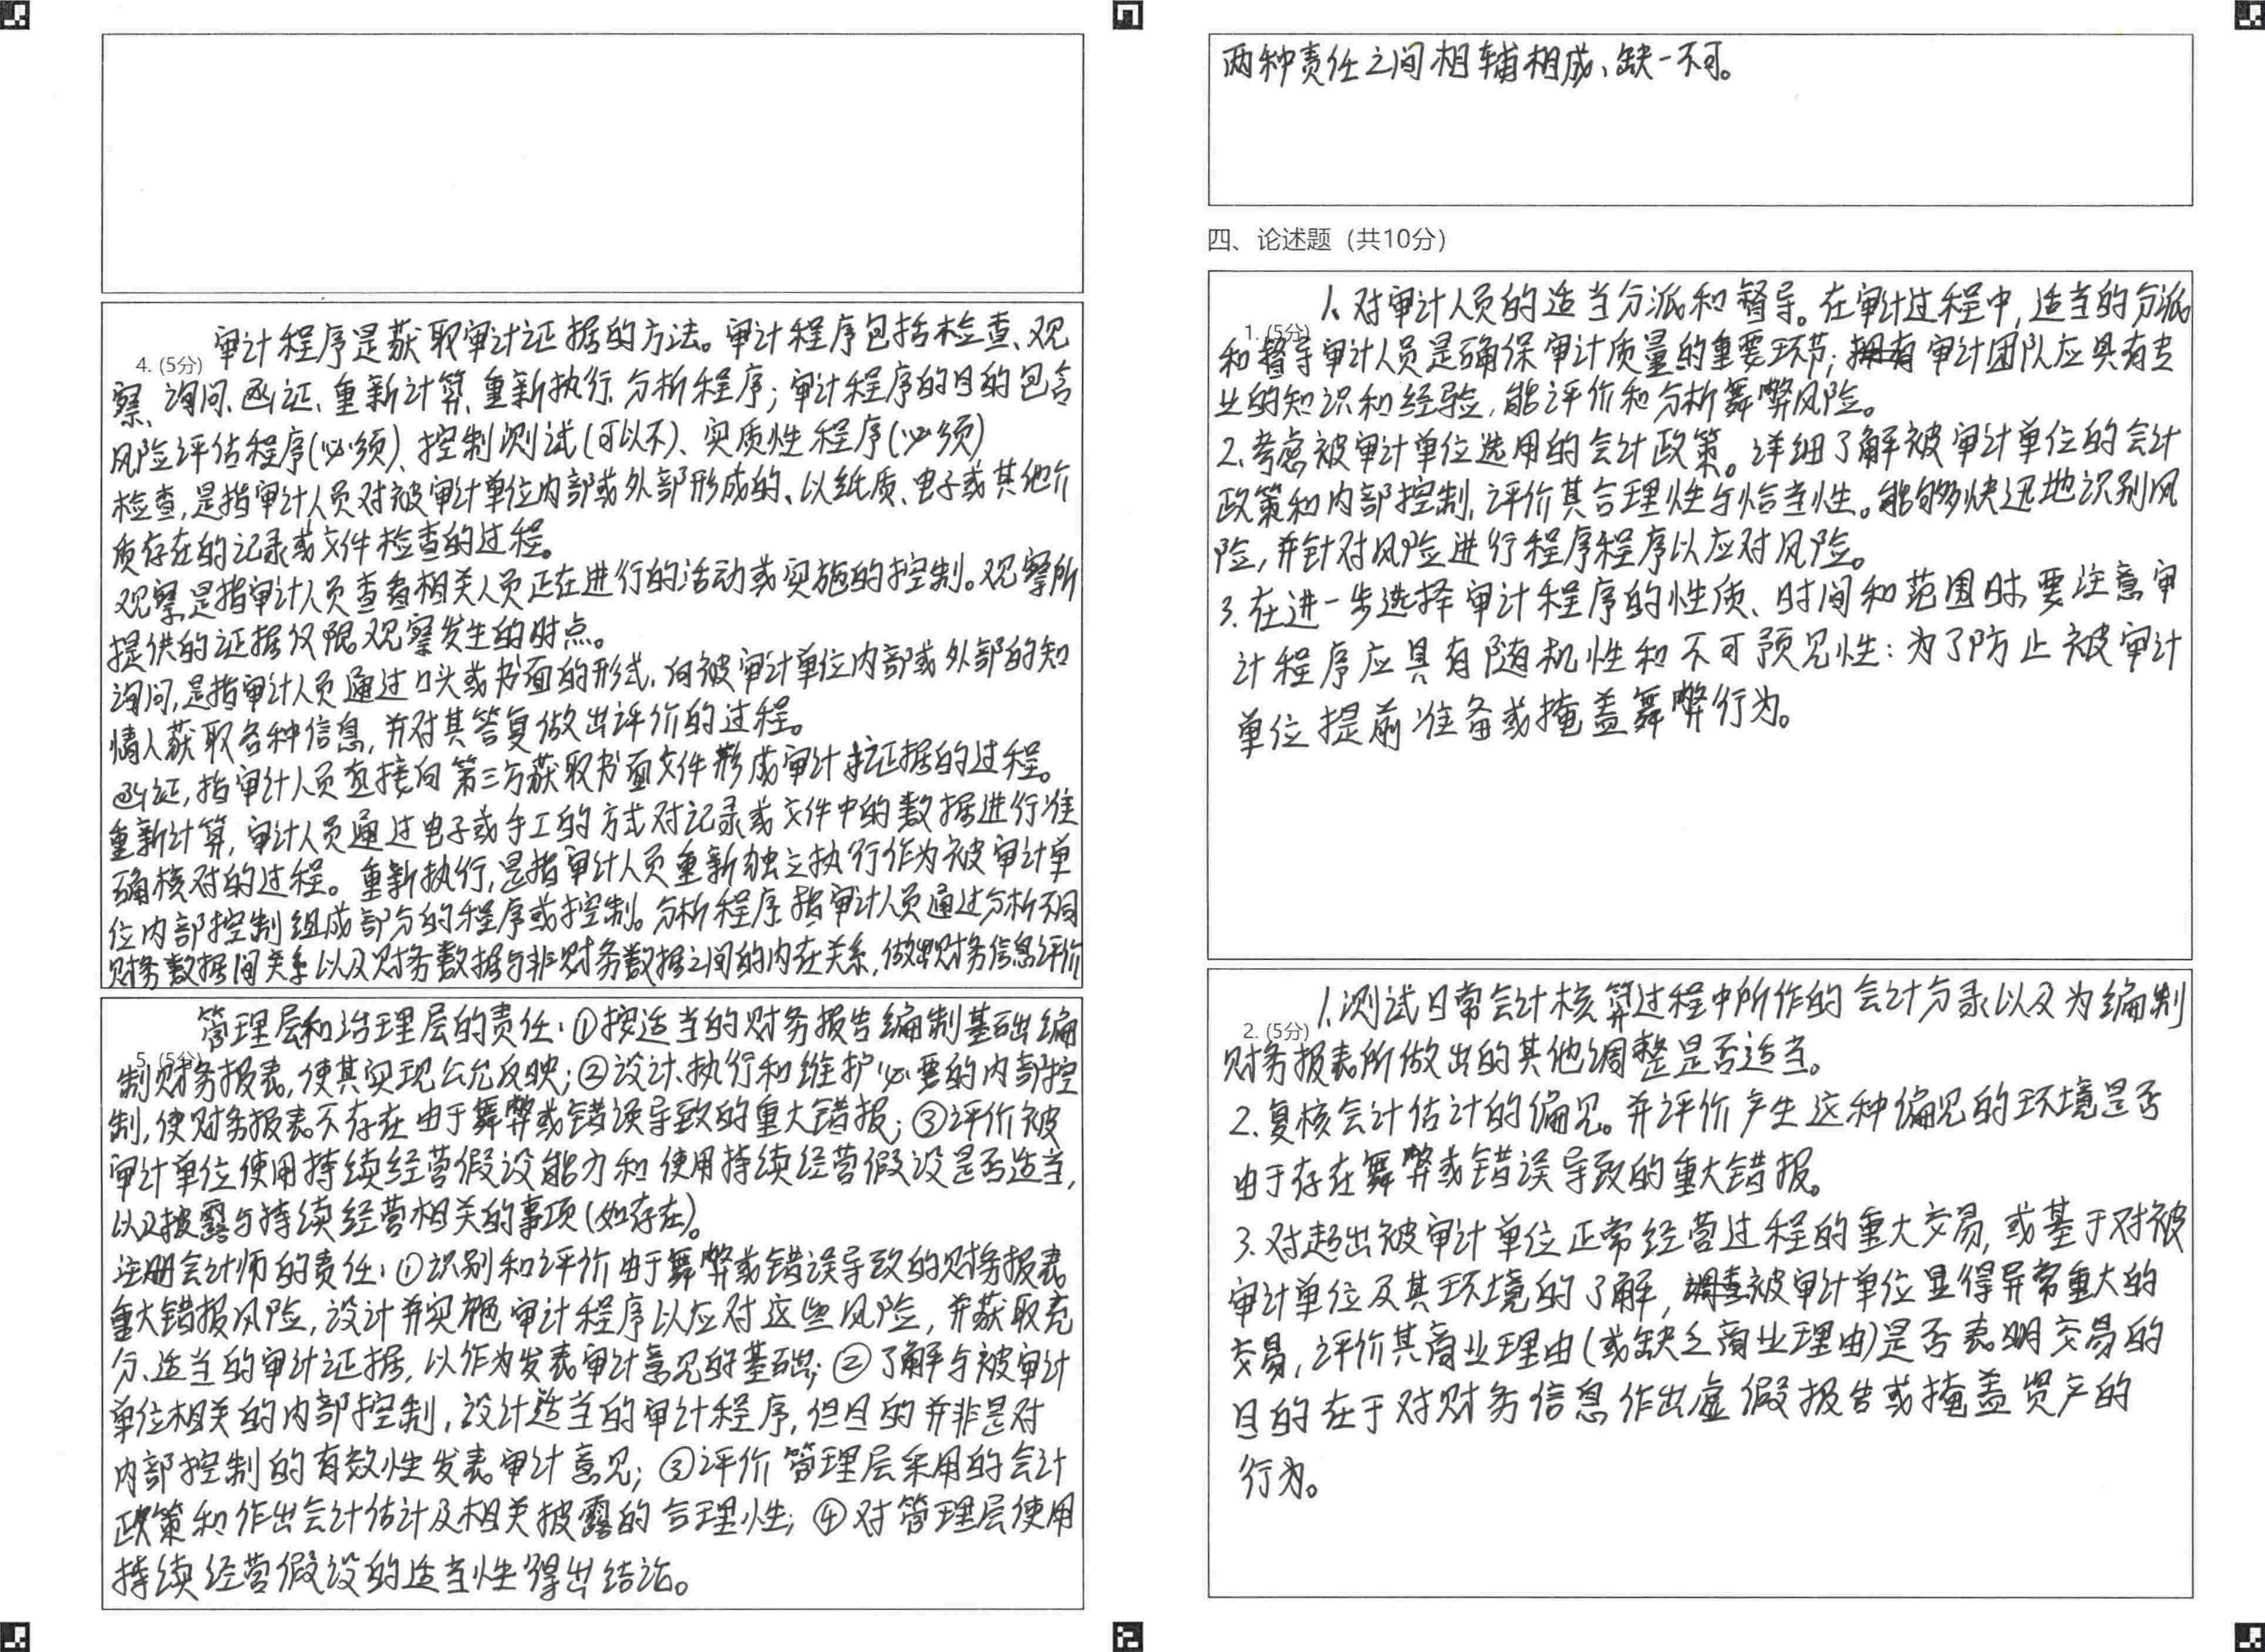 审计程序是获取审计证据的方法。审计程序包括检查、观
4. (5分)
察、询问、函证、重新计算、重新执行、分析程序；审计程序的目的包含
风险评估程序(必须)、控制测试(可以不)、实质性程序(必须)
检查，是指审计人员对被审计单位内部或外部形成的、以纸质、电子或其他介
质存在的记录或文件检查的过程。
观察，是指审计人员查看相关人员正在进行的活动或实施的控制。观察所
提供的证据仅限观察发生的时点。
询问，是指审计人员通过口头或书面的形式，向被审计单位内部或外部的知
情人获取各种信息，并对其答复做出评价的过程。
函证，指审计人员直接向第三方获取书面文件形成审计证据的过程。
重新计算，审计人员通过电子或手工的方式对记录或文件中的数据进行准
确核对的过程。重新执行，是指审计人员重新独立执行作为被审计单
位内部控制组成部分的程序或控制。分析程序，指审计人员通过分析不同
财务数据间关系以及财务数据与非财务数据之间的内在关系，做出财务信息评价
管理层和治理层的责任：①按适当的财务报告编制基础编
5. (5分)
制财务报表，使其实现公允反映；②设计、执行和维护必要的内部控
制，使财务报表不存在由于舞弊或错误导致的重大错报；③评价被
审计单位使用持续经营假设能力和使用持续经营假设是否适当，
以及披露与持续经营相关的事项(如存在)。
注册会计师的责任：①识别和评价由于舞弊或错误导致的财务报表
重大错报风险，设计并实施审计程序以应对这些风险，并获取充
分、适当的审计证据，以作为发表审计意见的基础；②了解与被审计
单位相关的内部控制，设计适当的审计程序，但目的并非是对
内部控制的有效性发表审计意见；③评价管理层采用的会计
政策和作出会计估计及相关披露的合理性；④对管理层使用
持续经营假设的适当性得出结论。
两种责任之间相辅相成、缺一不可。
四、论述题（共10分）
1、对审计人员的适当分派和督导。在审计过程中，适当的分派
1. (5分)
和督导审计人员是确保审计质量的重要环节；审计团队应具有专
业的知识和经验，能评价和分析舞弊风险。
2、考虑被审计单位选用的会计政策。详细了解被审计单位的会计
政策和内部控制，评价其合理性与恰当性。能够快迅地识别风
险，并针对风险进行程序程序以应对风险。
3、在进一步选择审计程序的性质、时间和范围时，要注意审
计程序应具有随机性和不可预见性：为了防止被审计
单位提前准备或掩盖舞弊行为。
1、测试日常会计核算过程中所作的会计分录以及为编制
2. (5分)
财务报表所做出的其他调整是否适当。
2、复核会计估计的偏见。并评价产生这种偏见的环境是否
由于存在舞弊或错误导致的重大错报。
3、对超出被审计单位正常经营过程的重大交易，或基于对被
审计单位及其环境的了解，被审计单位显得异常重大的
交易，评价其商业理由(或缺乏商业理由)是否表明交易的
目的在于对财务信息作出虚假报告或掩盖资产的
行为。